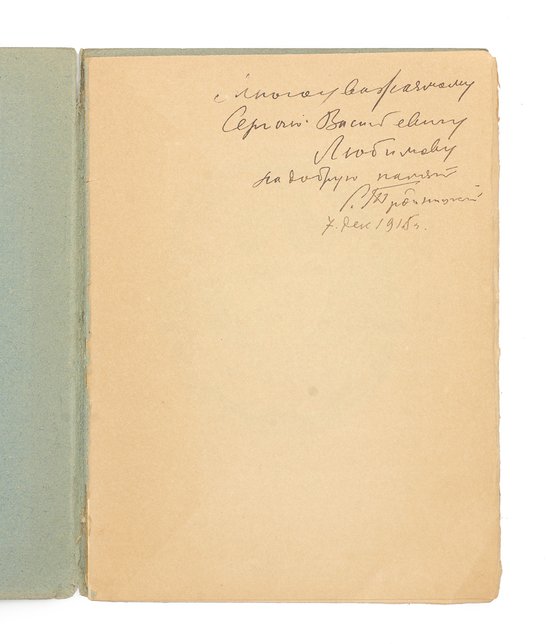 Многоуважаемому
Сергею Васильевичу
Любимову
на добрую память
С. Тройницкий
7. дек 1915 г.